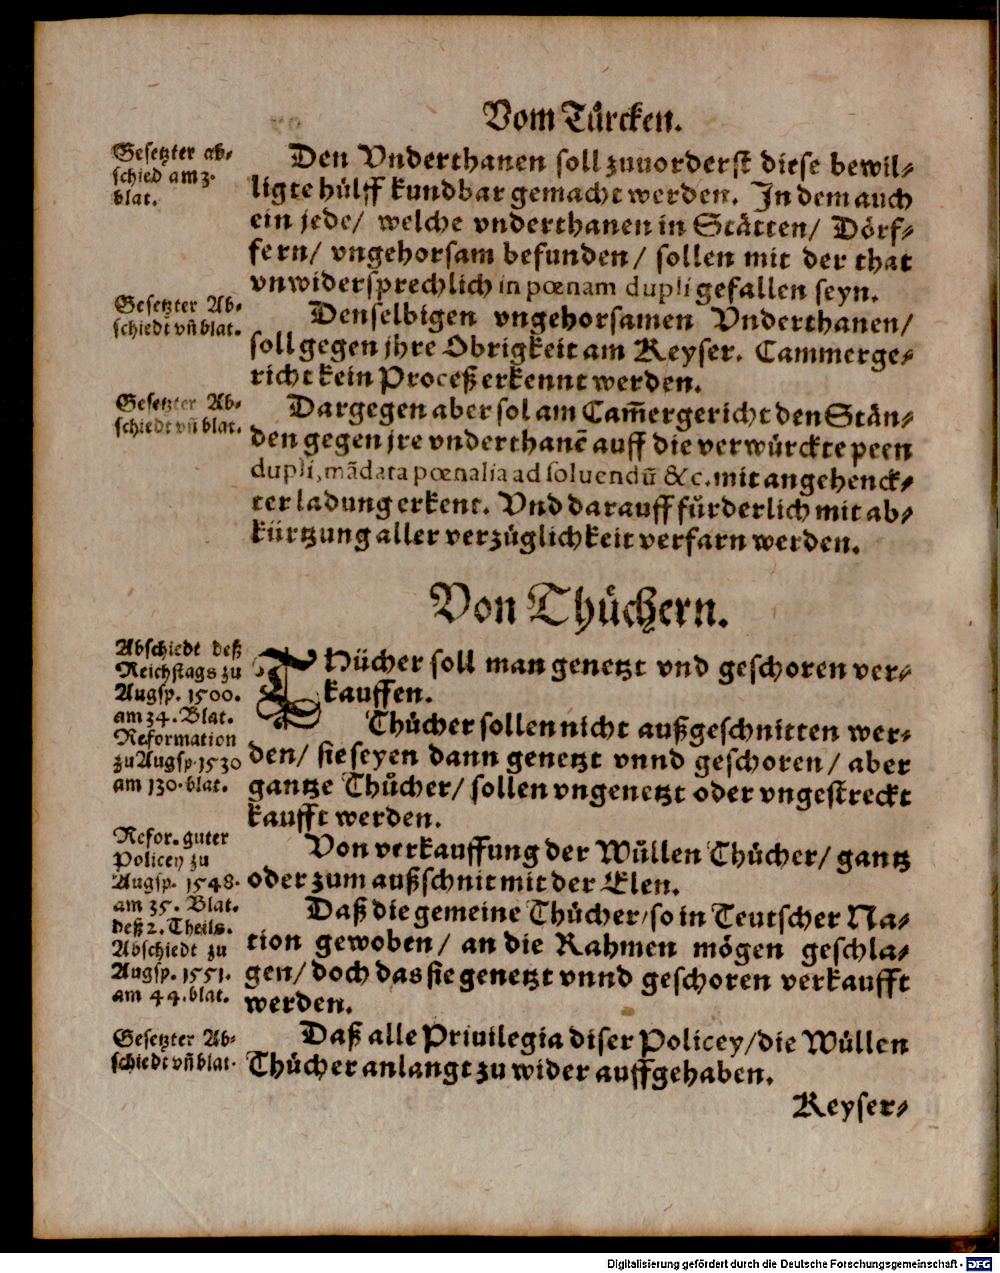 Vom Tuͤrcken.
Gesetzter ab⸗
schied am 3.
blat.
Den Vnderthanen soll zuuorderst diese bewil⸗
ligte huͤlff kundbar gemacht werden. In dem auch
ein jede/ welche vnderthanen in Staͤtten/ Doͤrf⸗
fern/ vngehorsam befunden/ sollen mit der that
vnwidersprechlich in pœnam dupli gefallen seyn.
Gesetzter Ab⸗
schiedt vñ blat.
Denselbigen vngehorsamen Vnderthanen/
soll gegen jhre Obrigkeit am Keyser. Cammerge⸗
richt kein Proceß erkennt werden.
Gesetzter Ab⸗
schiedt vñ blat.
Dargegen aber sol am Cam̃ergericht den Staͤn⸗
den gegen jre vnderthanē auff die verwuͤrckte peen
dupli, mãdata pœnalia ad soluendũ &c. mit angehenck⸗
ter ladung erkent. Vnd darauff fuͤrderlich mit ab⸗
kuͤrtzung aller verzuͤglichkeit verfarn werden.
Von Thuͤchern.
Abschiedt deß
Reichstags zu
Augsp. 1500.
am 34. Blat.
Reformation
zu Augsp. 1530
am 130. blat.
THuͤcher soll man genetzt vnd geschoren ver⸗
kauffen.
Thuͤcher sollen nicht außgeschnitten wer⸗
den/ sie seyen dann genetzt vnnd geschoren/ aber
gantze Thuͤcher/ sollen vngenetzt oder vngestreckt
kaufft werden.
Refor. guter
Policey zu
Augsp. 1548.
am 35. Blat.
deß 2. Theils.
Von verkauffung der Wuͤllen Thuͤcher/ gantz
oder zum außschnit mit der Elen.
Abschiedt zu
Augsp. 1551.
am 44. blat.
Daß die gemeine Thuͤcher/ so in Teutscher Na⸗
tion gewoben/ an die Rahmen moͤgen geschla⸗
gen/ doch das sie genetzt vnnd geschoren verkaufft
werden.
Gesetzter Ab⸗
schiedt vñ blat.
Daß alle Priuilegia diser Policey/ die Wuͤllen
Thuͤcher anlangt zu wider auffgehaben.
Keyser⸗
Digitalisierung gefördert durch die Deutsche Forschungsgemeinschaft - DFG